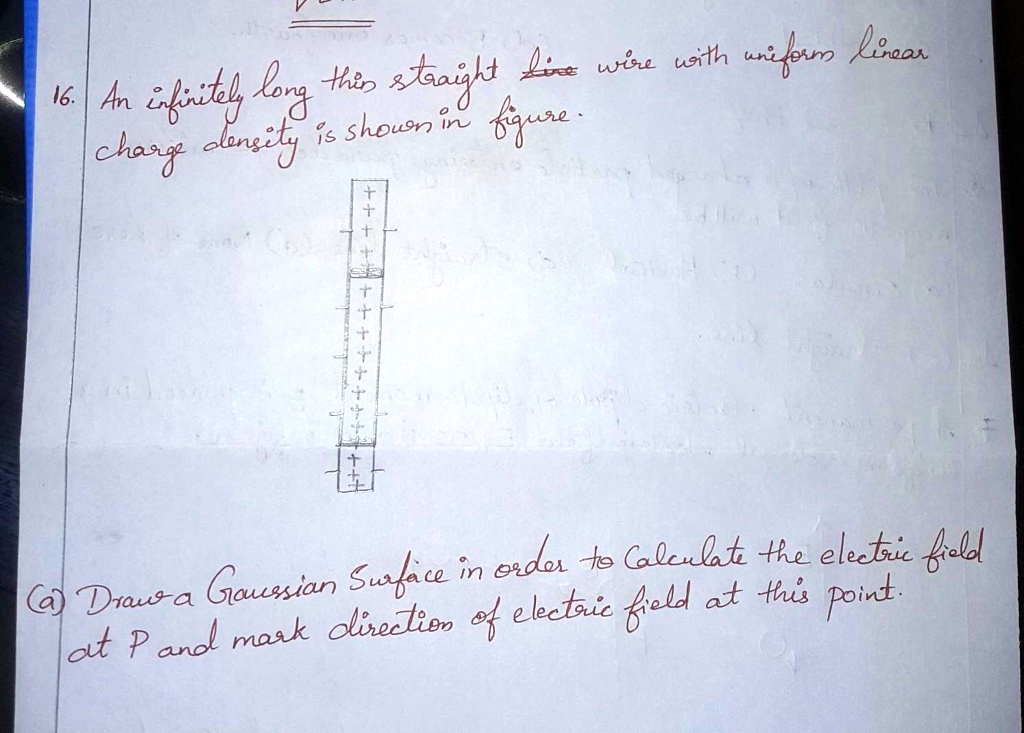 16. An infinitely long thin straight line wire with uniform linear
charge density is shown in figure.
(a) Draw a Gaussian Surface in order to Calculate the electric field
at P and mark direction of electric field at this point.